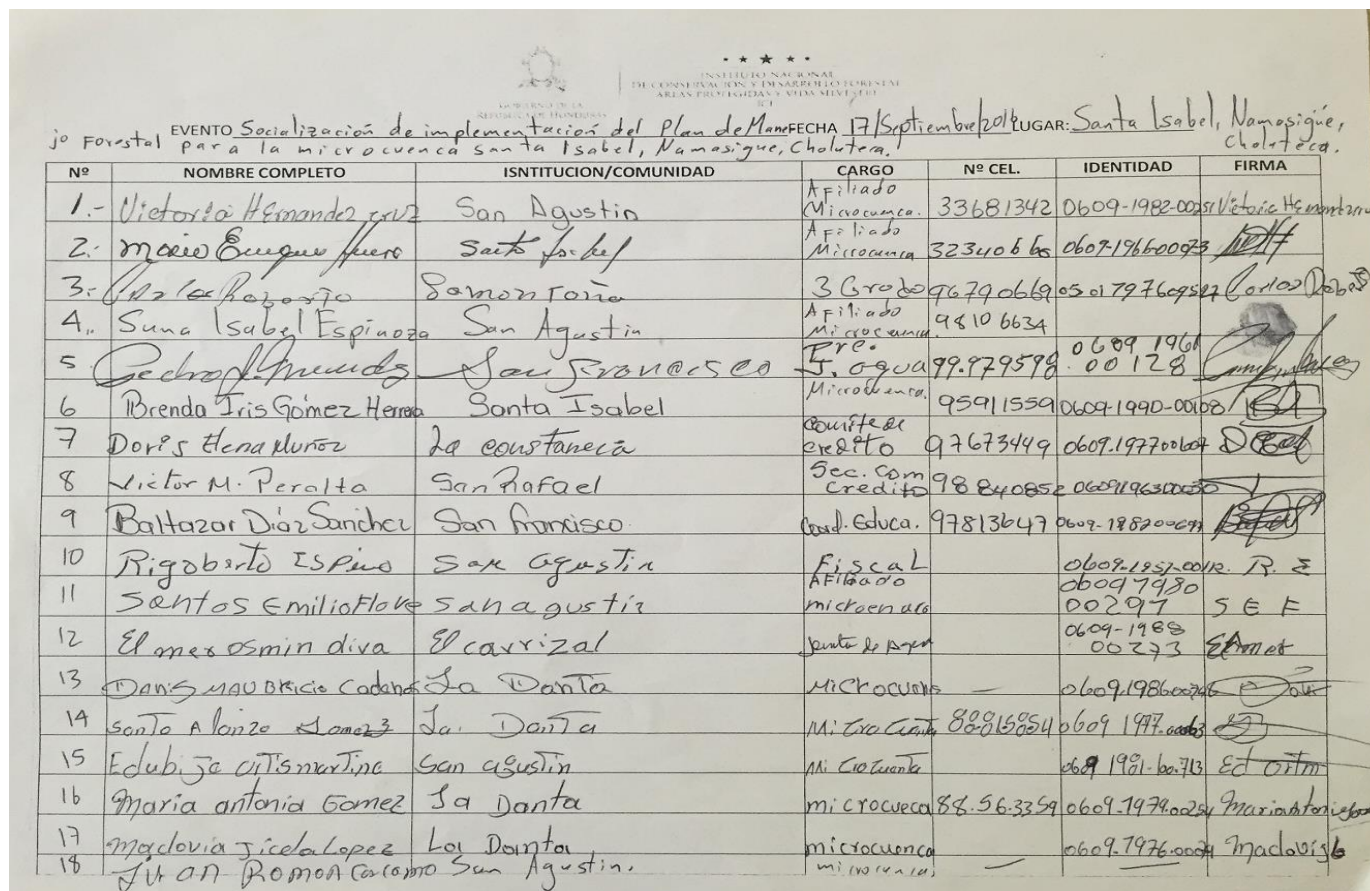 GOBIERNO DE LA
REPÚBLICA DE HONDURAS
★ ★ ★ ★ ★
INSTITUTO NACIONAL
DE CONSERVACIÓN Y DESARROLLO FORESTAL
ÁREAS PROTEGIDAS Y VIDA SILVESTRE
ICF
EVENTO Socialización de implementación del Plan de Mane FECHA 17/Septiembre/2019 LUGAR: Santa Isabel, Namasigüe,
jo Forestal para la microcuenca santa Isabel, Namasigue, Choluteca. Choluteca.
Nº NOMBRE COMPLETO ISNTITUCION/COMUNIDAD CARGO Nº CEL. IDENTIDAD FIRMA
1.- Victoria Hernandez cruz San Agustin Afiliado Microcuenca. 33681342 0609-1982-00251 Victoria Hernandez
2.- Mario Enrique Santa Isabel Afiliado Microcuenca 0609-196600073
3.- Carlos Roberto 3 Grado 96790669 Carlos
4.. Suna Isabel Espinoza San Agustin Afiliado Microcuenca. 9810 6634
5 Pedro San Francisco Pre. J. agua 99.979598 0609 1961 00128
6 Brenda Iris Gómez Herrera Santa Isabel Microcuenca. 95911559 0609-1990-00108
7 Doris Elena Muñoz La constanecia Comite de credito 97673449 0609.197700607
8 Victor M. Peralta San Rafael Sec. Com Credito 98840852 0609196300030
9 Baltazar Díaz Sanchez San francisco. Coord. Educa. 97813647
10 Rigoberto Espino San agustin Fiscal R. E
11 Santos Emilio Flore san agustin AFiliado 00297 S E F
12 El mer osmin diva El carrizal Junta de agua 0609-1988 00273 Elmer
13 Danis MAUBRICIO La Danta Microcuens —
14 Santo Alonzo Gomez La. Danta 0609 1977.
15 Edubije San agustin
16 Maria antonia Gomez La Danta microcueca 88.56.3359 0609.1979.00254 Maria Antonia
17 Maclovia Jicela Lopez La Danta microcuenca Maclovia
18 Juan Ramon Carcamo San Agustin. microcuenca — —